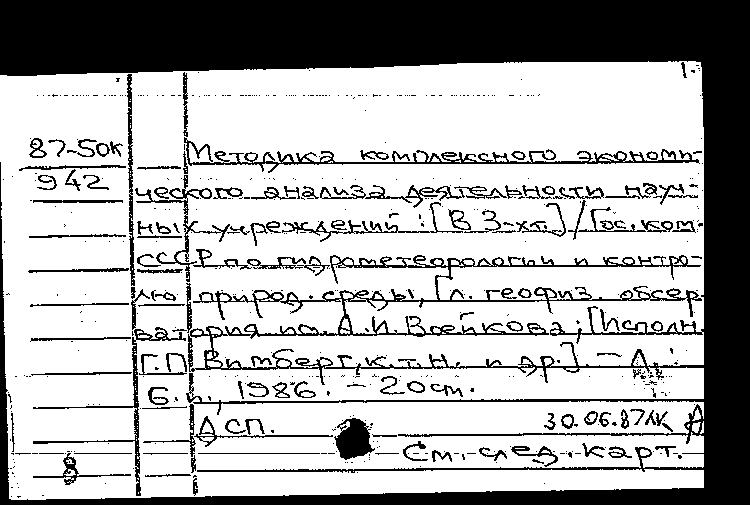 1.
87-50к Методика комплексного экономи-
942 ческого анализа деятельности науч-
ных учреждений : [В 3-хт.] / Гос. ком.
СССР по гидрометеорологии и контро-
лю природ. среды, Гл. геофиз. обсер-
ватория им. А.И. Воейкова ; [Исполн.
Г.П Вимберг, к.т.н. и др.]. – Л. :
Б.и., 1986. – 20см.
ДСП. 30.06.87ЛК
См. след. карт.